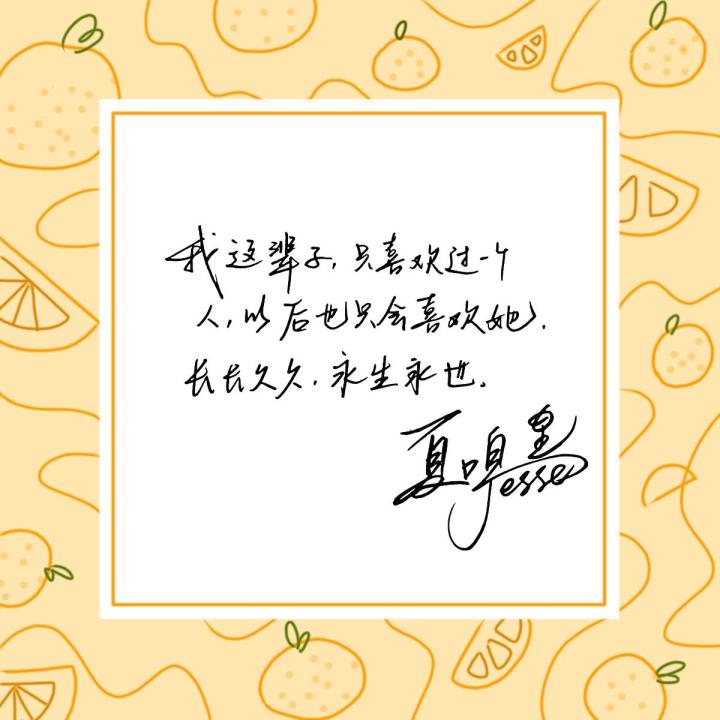 我这辈子，只喜欢过一个
人，以后也只会喜欢她．
长长久久．永生永世。
夏鸣星
Jesse